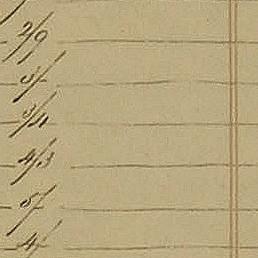 2/9
3/
3/11
4/3
5/
4/